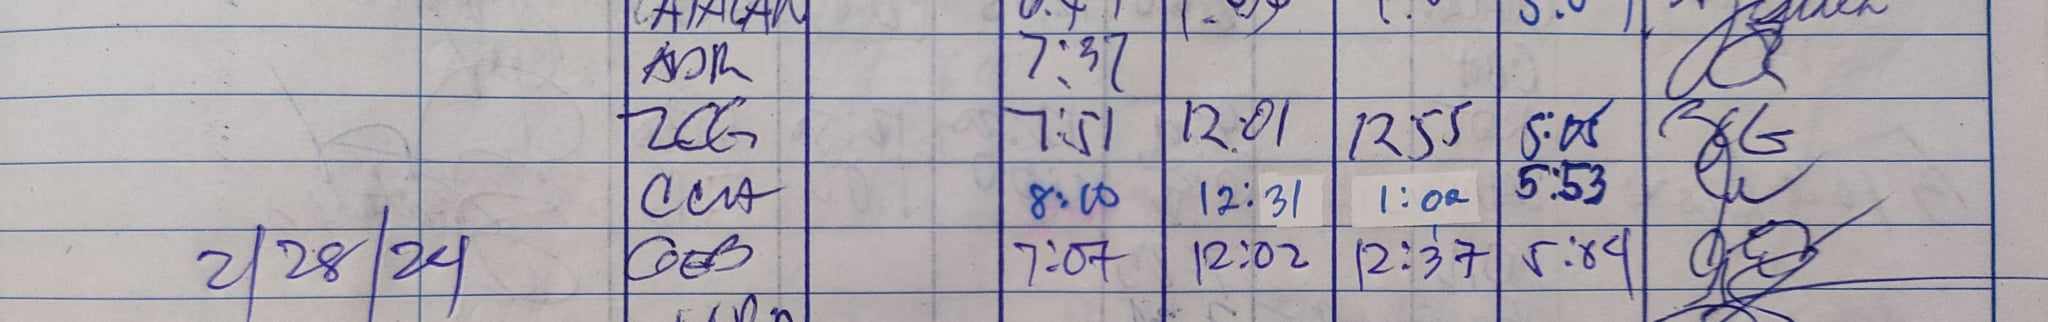 CATALAN
ADR 7:37
ZCG 7:51 12:01 12 55 5:05
CCA 8:00 12:31 1:02 5:53
2/28/24 OEB 7:07 12:02 12:37 5:04